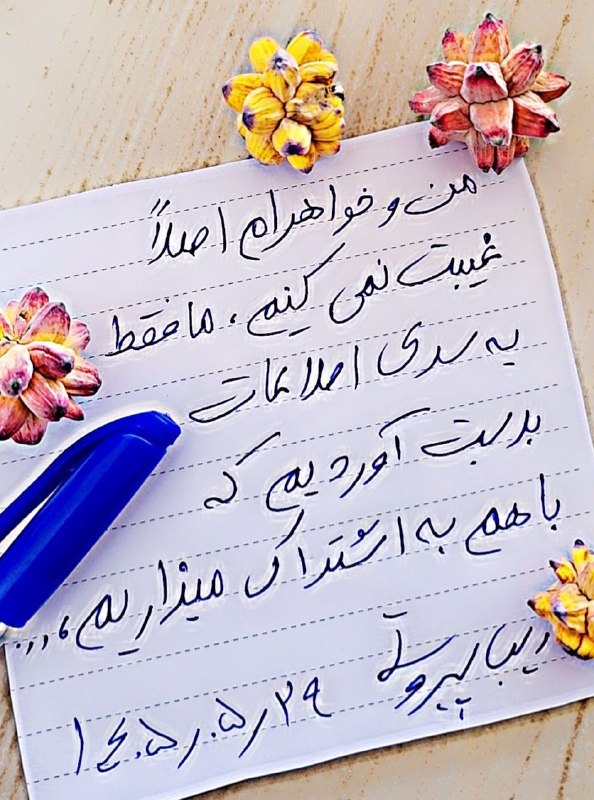 من و خواهرام اصلاً
غیبت نمی کنیم، ما فقط
یه سری اطلاعات
بدست آوردیم که
با هم به اشتراک میذاریم،...
دیبا پیروی
۱۴۰۵٫۵٫۲۹